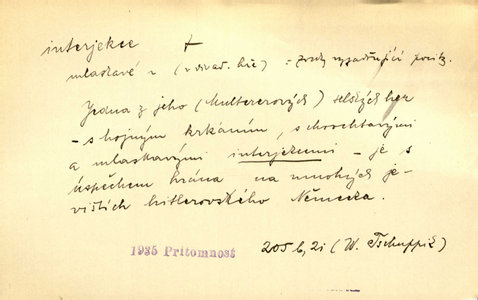 interjekce +
mlaskavé i (v divad. hře) = zvuky vyjadřující pocity.
Jedna z jeho (Multererových) selských her
– s hojným krkáním, schochtavými
a mlaskavými interjekcemi – je s
úspěchem hrána na mnohých je-
vištích hitlerovského Německa.
1935 Přítomnost 205 b, 2i (W. Tschuppik)